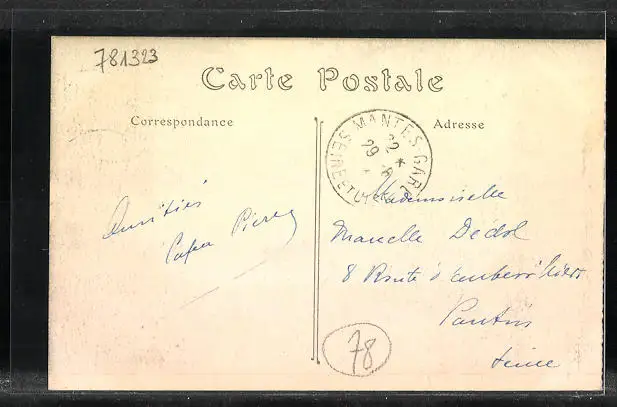 781323
Carte Postale
Correspondance
Adresse
MANTES GARE
SEINE ET
22 *
29
Amitiés
Papa Pierre
Mademoiselle
Marcelle Dedol
8 Route d'Aubervilliers
Pantin
Seine
78